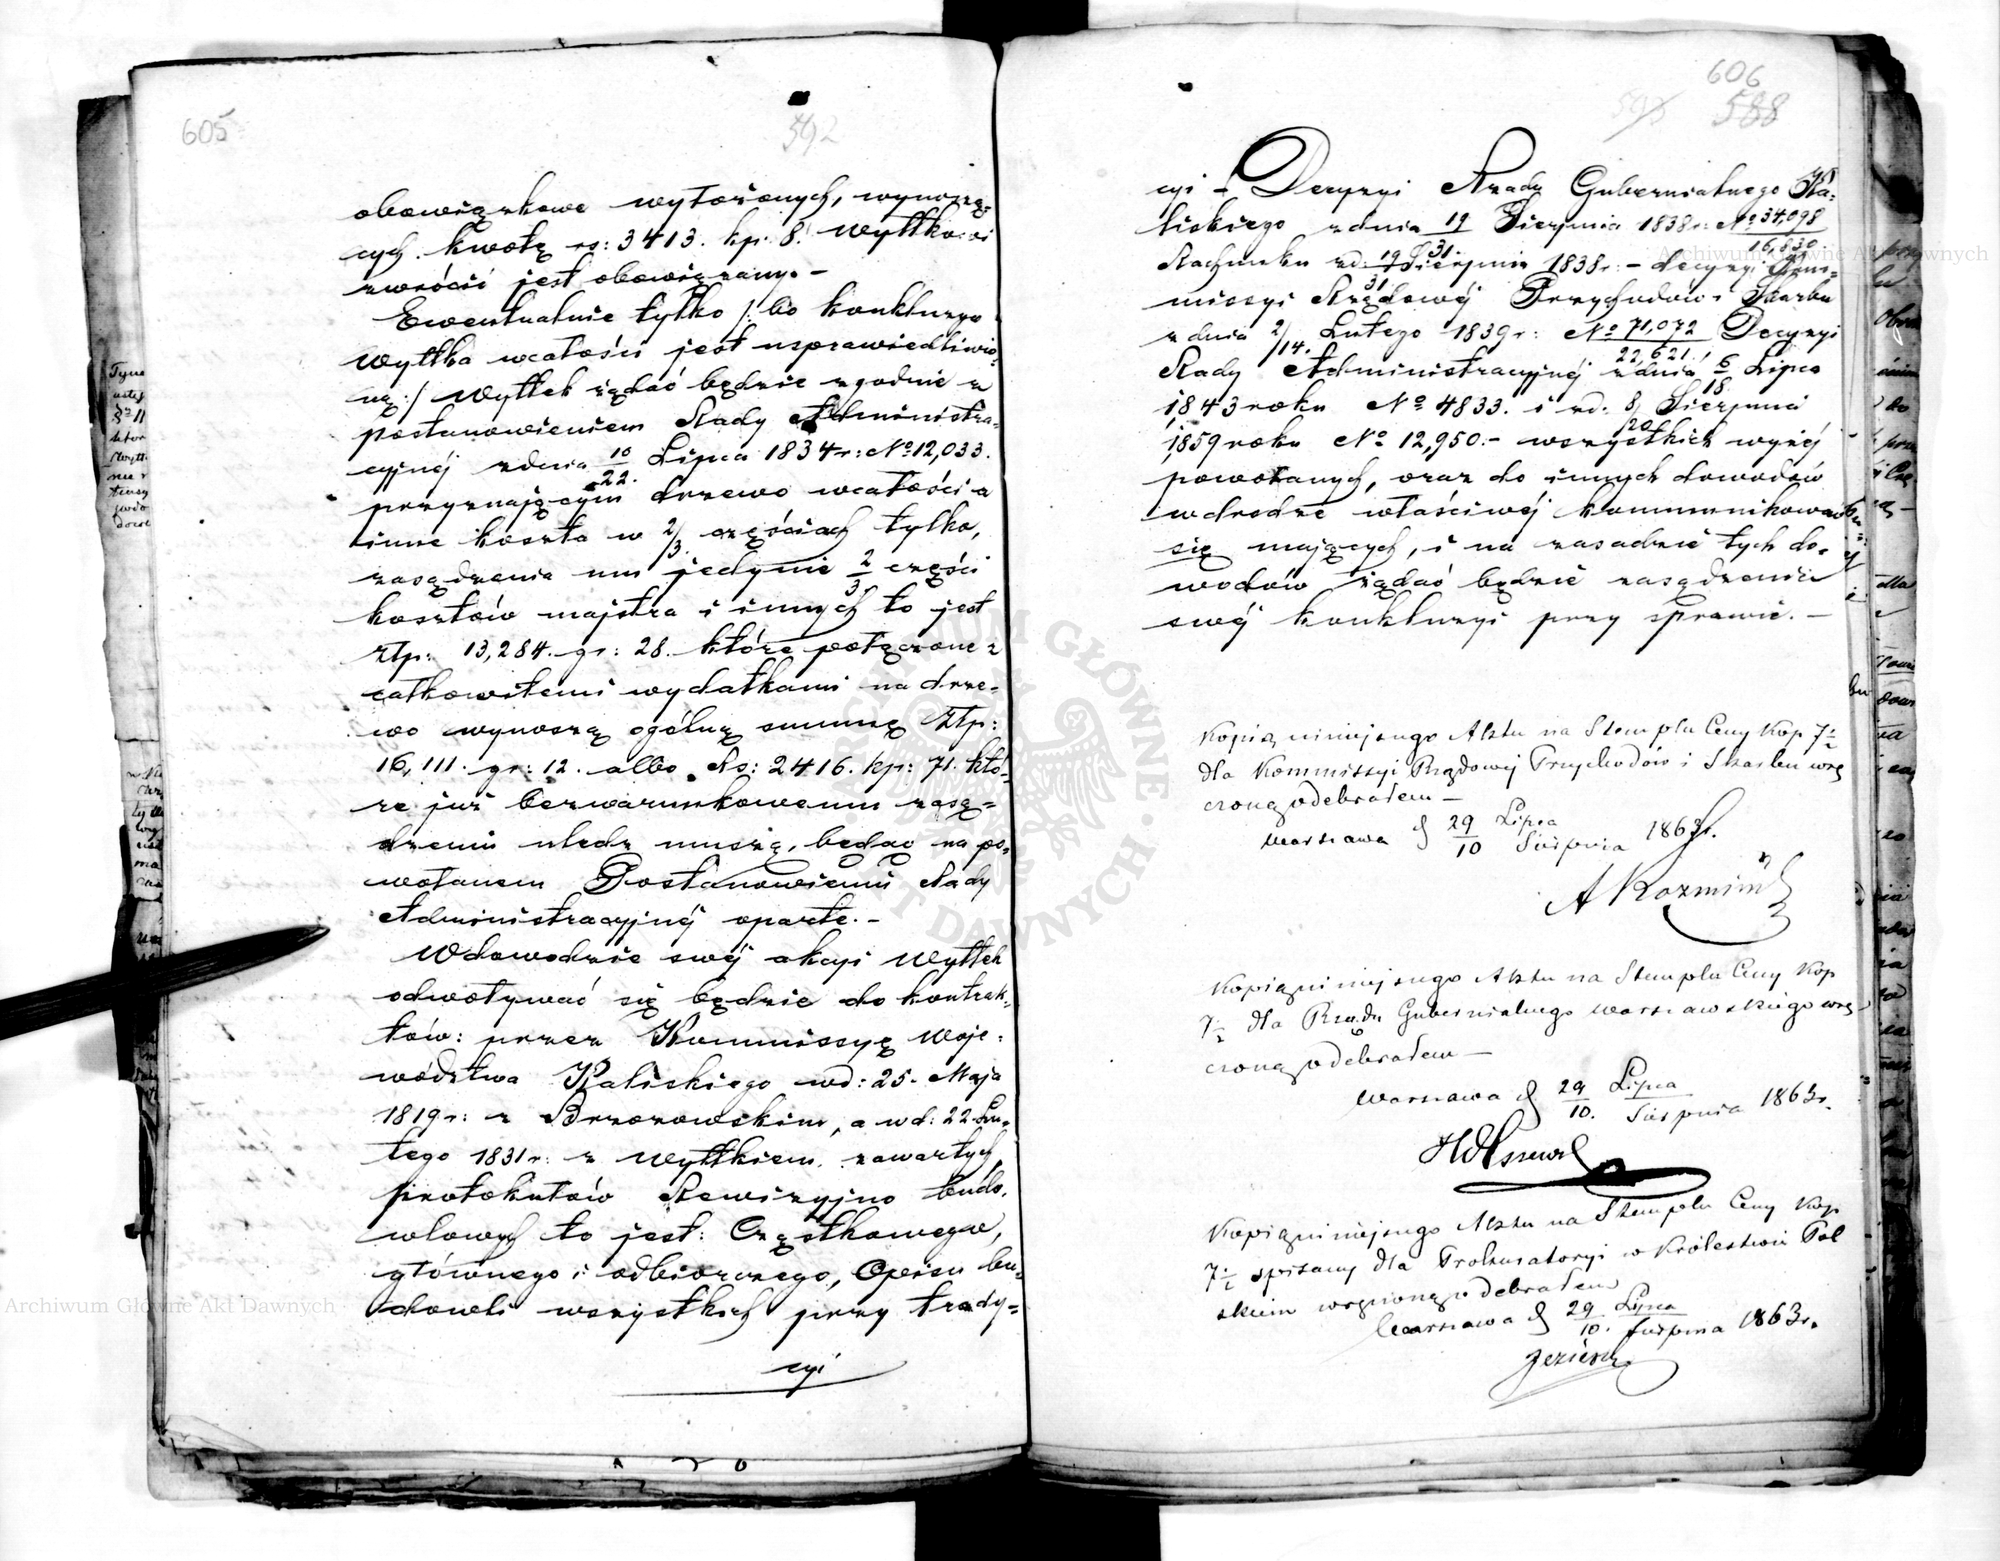 605
592
obowiązkowo wyłożonych, wynoszą-
cych kwotę rs: 3413. kp: 8. Wyttkowi
zwrócić jest obowiązany. –
Ewentualnie tylko /: bo konkluzya
Wyttka wcałości jest usprawiedliwio-
ną :/ Wyttek żądać będzie zgodnie z
postanowieniem Rady Administra-
cyjnéj zdnia 10/22. Lipca 1834 r: No 12,033.
przyznającym drzewo wcałości a
inne koszta w 2/3. częściach tylko,
zasądzenia mu jedynie 2/3 części
kosztów majstra i innych to jest
złp: 13,284. gr: 28. które połączone z
całkowitemi wydatkami na drze-
wo wynoszą ogólną summę złp:
16,111. gr: 12. albo Rs: 2416. kp: 71. któ-
re już bezwarunkowemu zasą-
dzeniu uledz muszą, będąc na po-
wołanem Postanowieniu Rady
Administracyjnéj oparte. –
W dowodzie swéj akcyi Wyttek
odwoływać się będzie do kontrak-
tów: przez Kommissyę Woje-
wództwa Kaliskiego wd: 25. Maja
1819 r: z Brzozowskim, a wd: 22 Lu-
tego 1831 r: z Wyttkiem zawartych,
protokułów Rewizyjno budo-
wlowych to jest: Cząstkowego,
głównego i odbiorczego, Opisu bu-
dowli wszystkich przy trady-
cyi
606
593 588
cyi – Decyzyi Rządu Gubernialnego Ka-
liskiego zdnia 19/31 Sierpnia 1838 r: No 34,098/16,630
Rachunku zd: 19/31 Sierpnia 1838 r: – decyzyi Kom-
missyi Rządowéj Przychodów i Skarbu
zdnia 2/14. Lutego 1839 r: No 71,072/22,621. Decyzyi
Rady Administracyjnéj zdnia 6/18 Lipca
1843 roku No 4833. i zd: 8/20 Sierpnia
1859 roku No 12,950. – wszystkich wyżéj
powołanych, oraz do innych dowodów
wdrodze właściwéj kommunikować
się mających, i na zasadzie tych do-
wodów żądać będzie zasądzenia
swéj konkluzyi przy sprawie. –
Kopią niniejszego Aktu na Stemplu Ceny Kop 7 1/2
dla Kommissyi Rządowéj Przychodów i Skarbu wrę
czoną odebrałem –
Warszawa d 29/10 Lipca/Sierpnia 1863 r.
A Kozmiń
Kopią niniejszego Aktu na Stemplu Ceny Kop
7 1/2 dla Rządu Gubernialnego Warszawskiego wrę
czoną odebrałem –
Warszawa d 29/10. Lipca/Sierpnia 1863 r.
Kopią niniejszego Aktu na Stemplu Ceny Kop
7 1/2 spisany dla Prokuratoryi w Królestwie Pol
skiem wręczoną odebrałem
Warszawa d 29/10. Lipca/Sierpnia 1863 r.
Archiwum Główne Akt Dawnych
Archiwum Główne Akt Dawnych
ARCHIWUM GŁÓWNE AKT DAWNYCH